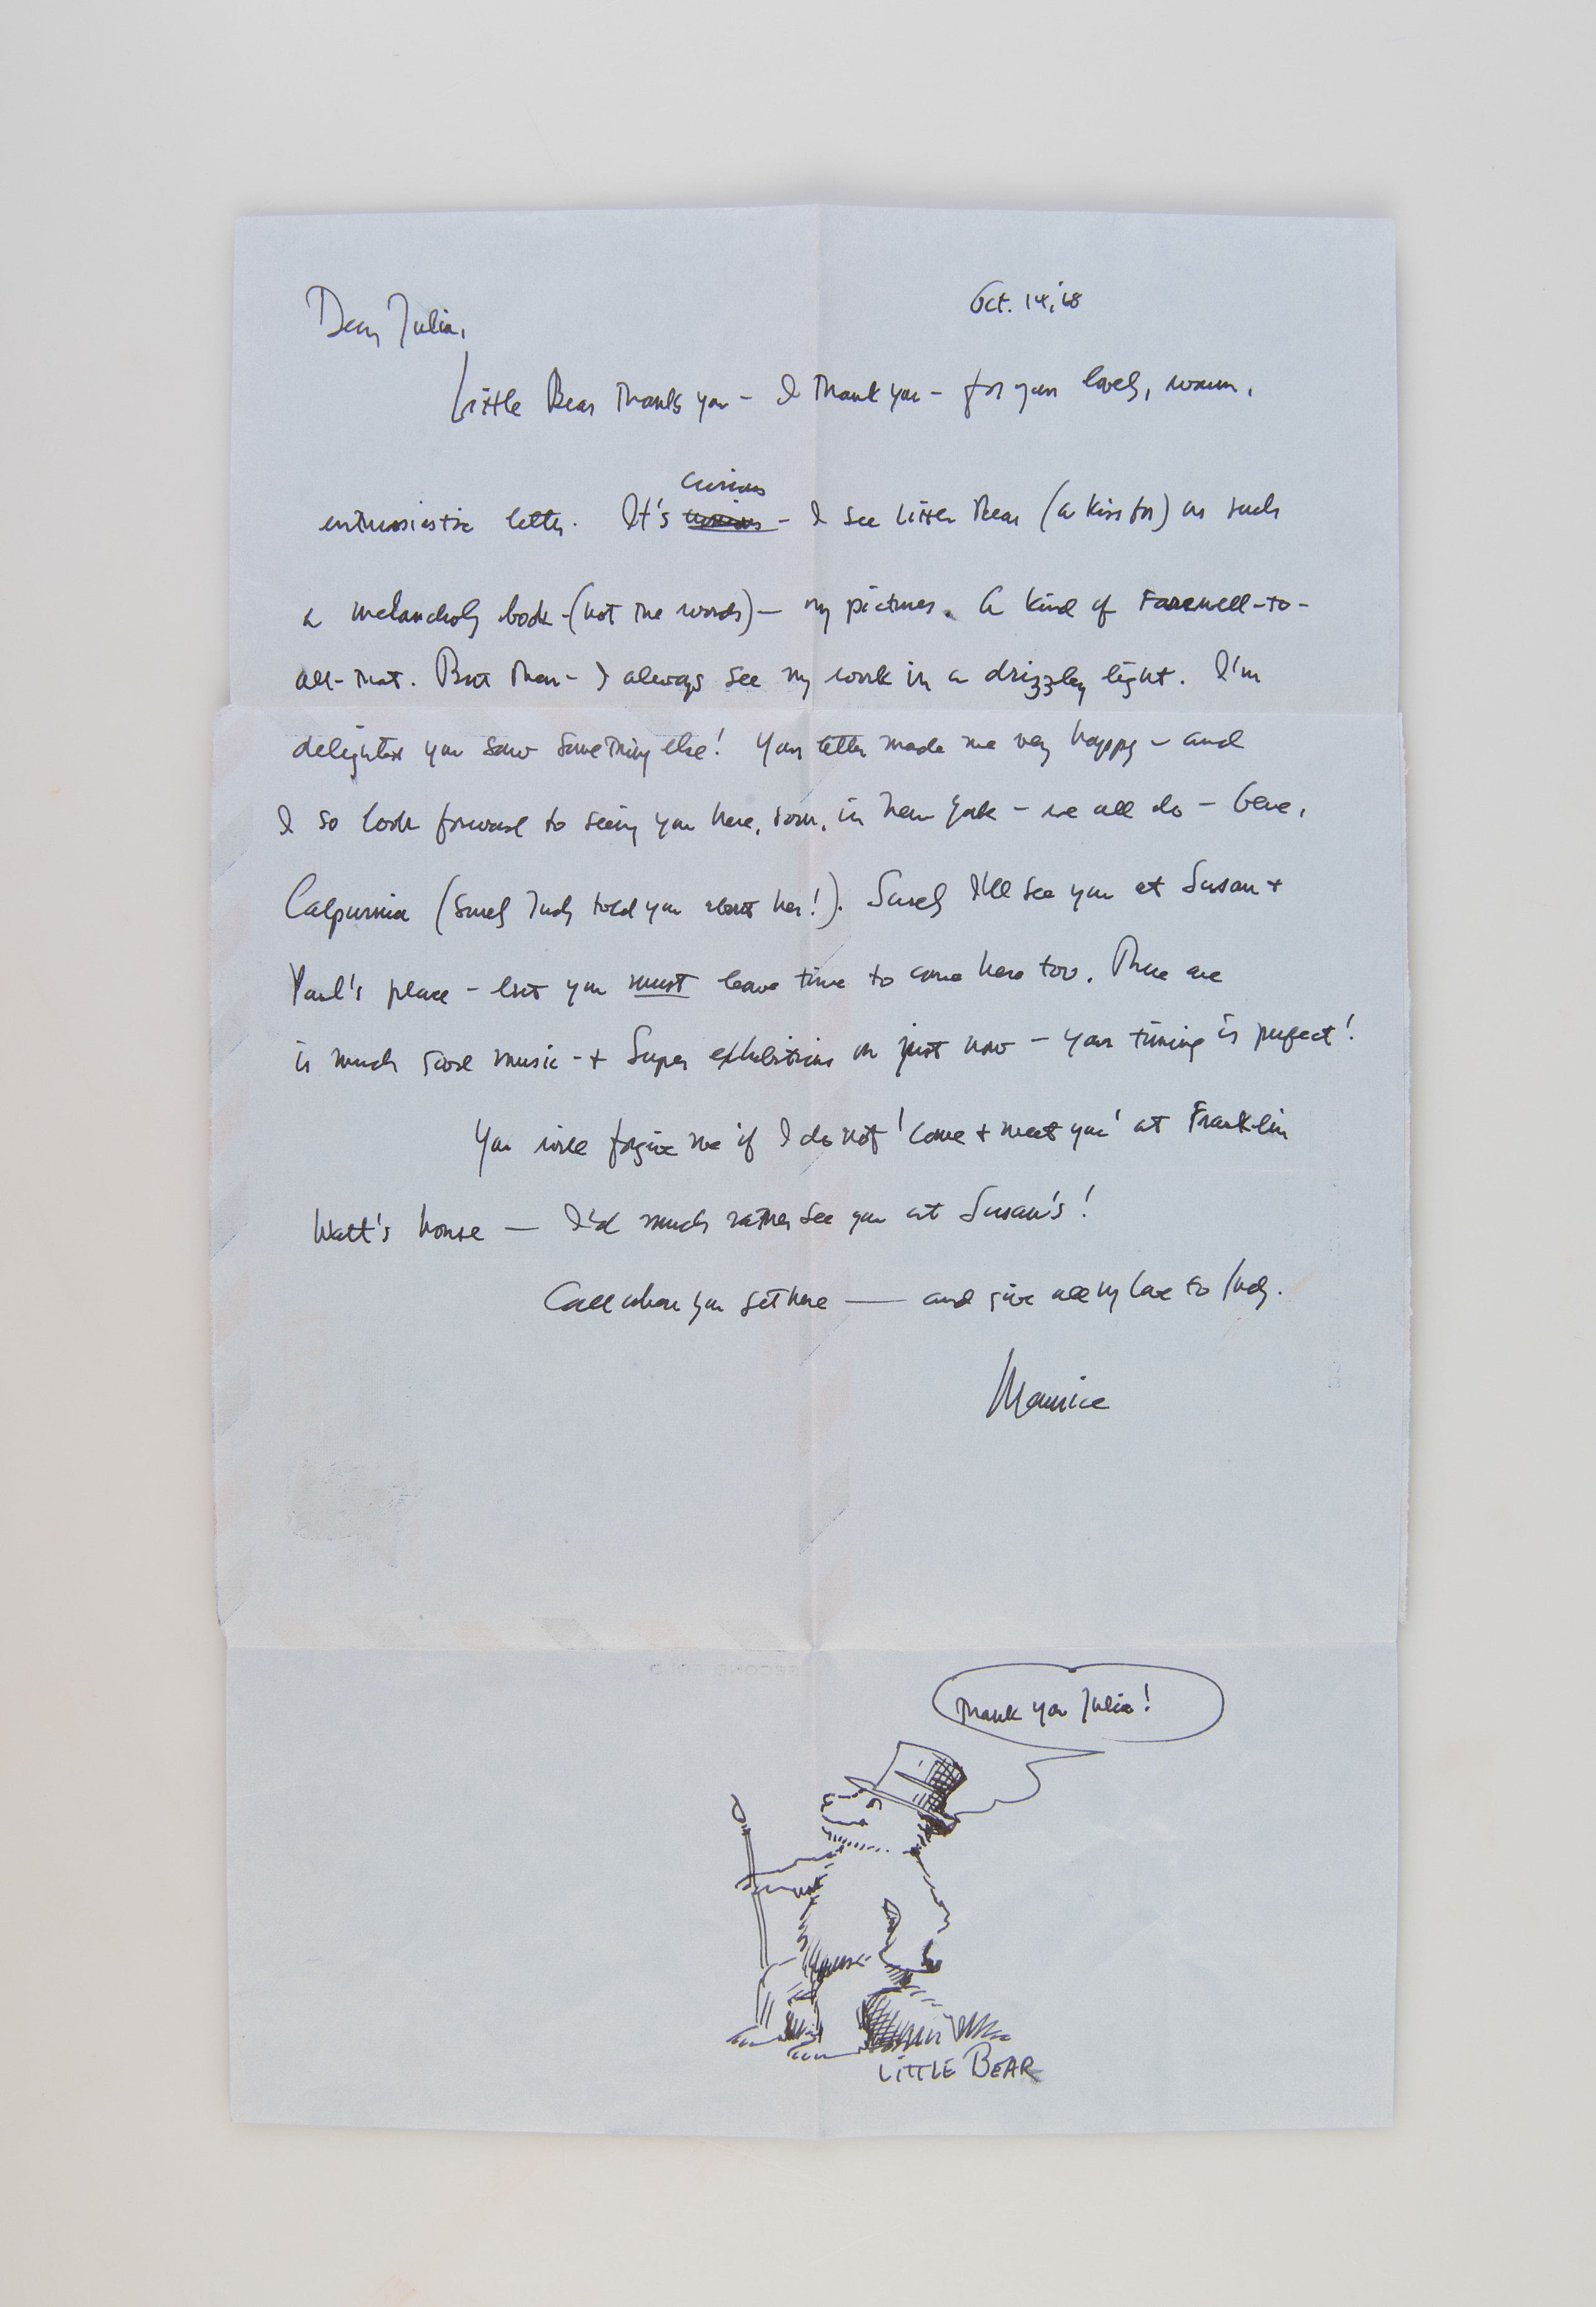 Oct. 14, '68
Dear Julia,
Little Bear Thanks you – I Thank you – for your lovely, warm,
enthusiastic letter. It's curious – I see Little Bear (a kiss for) as such
a melancholy book – (not the words) – my pictures. A kind of Farewell-to-
all-that. But then – I always see my work in a drizzley light. I'm
delighted you saw something else! Your letter made me very happy – and
I so look forward to seeing you here, soon, in New York – we all do – Gene,
Calpurnia (surely Judy told you about her!). Surely I'll see you at Susan +
Paul's place – but you must leave time to come here too. There are
is much good music – + Super exhibitions on just now – your timing is perfect!
You will forgive me if I do not 'come + meet you' at Franklin
Watt's house — I'd much rather see you at Susan's!
Call when you get here — and give all my love to Judy.
Maurice
Thank you Julia!
LITTLE BEAR